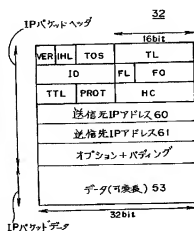 32
IPパケットヘッダ
16bit
VER IHL TOS TL
ID FL FO
TTL PROT HC
送信元IPアドレス60
送信先IPアドレス61
オプション+パディング
データ(可変長)53
32bit
IPパケットデータ